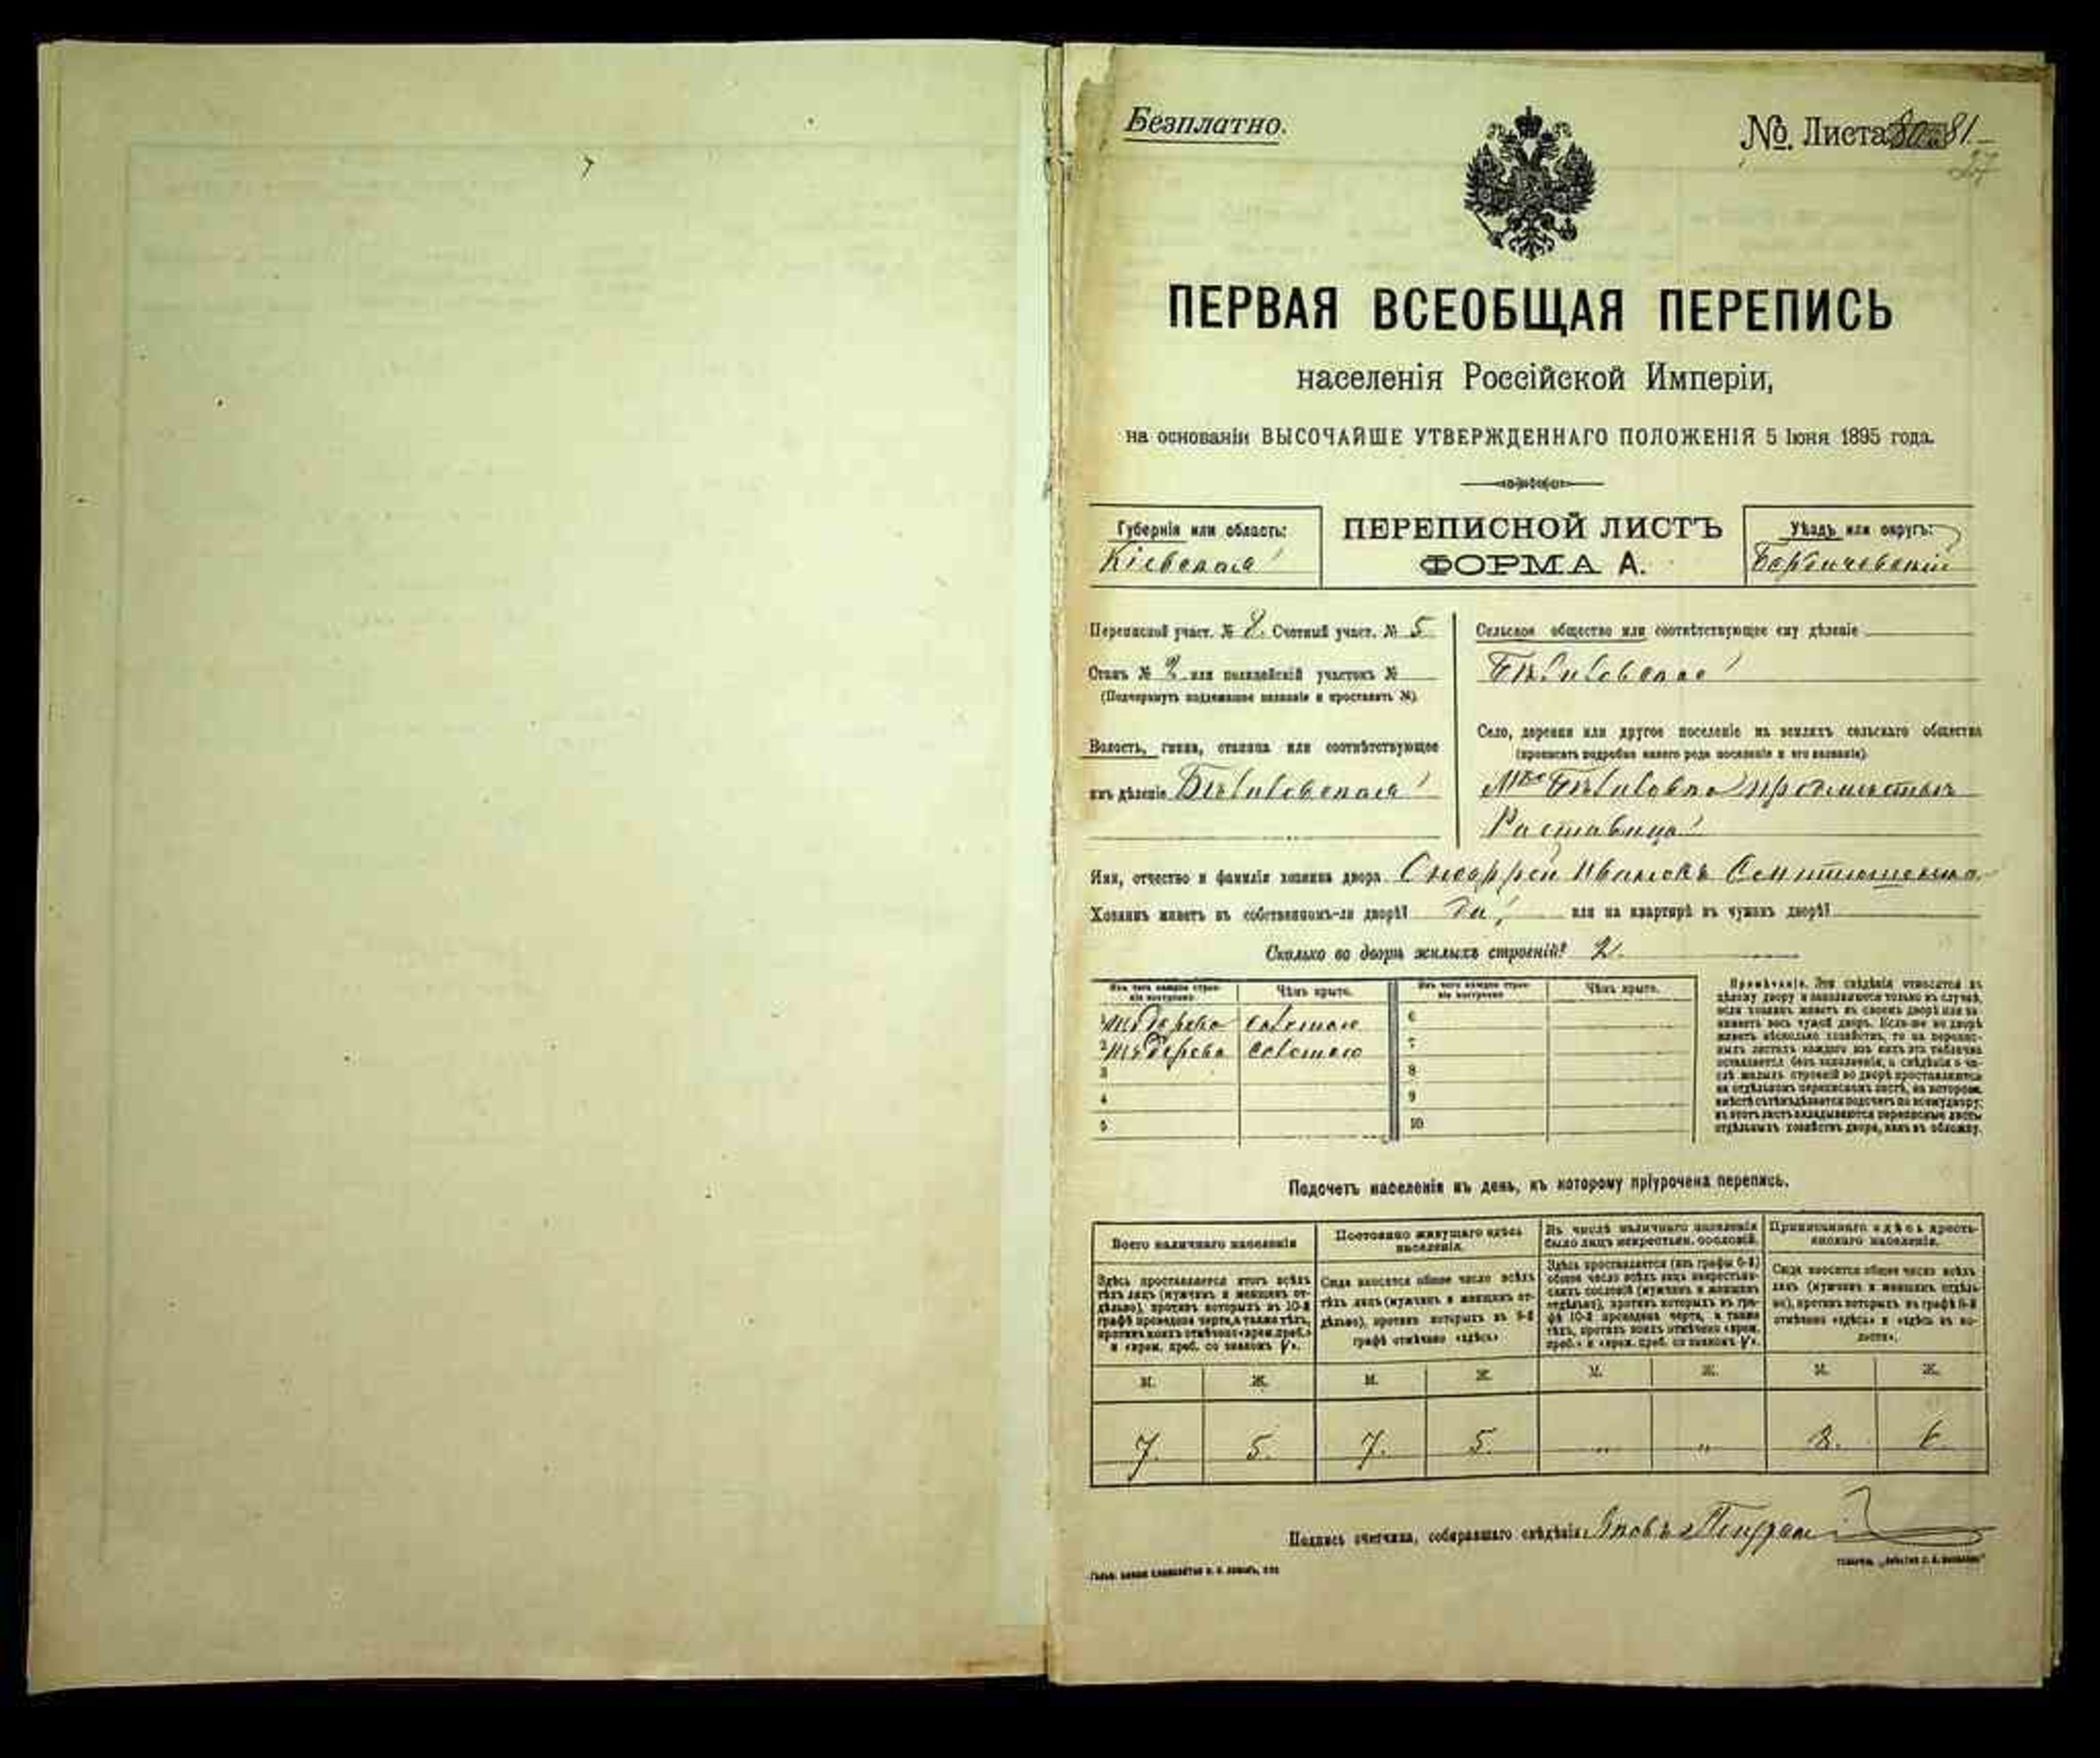 Безплатно.
№ Листа 81.
27
ПЕРВАЯ ВСЕОБЩАЯ ПЕРЕПИСЬ
населенія Россійской Имперіи,
на основаніи ВЫСОЧАЙШЕ УТВЕРЖДЕННАГО ПОЛОЖЕНІЯ 5 Іюня 1895 года.
Губернія или область:
Кіевская
ПЕРЕПИСНОЙ ЛИСТЪ
ФОРМА А.
Уѣздъ или округъ:
Бердичевскій
Переписной участ. № 8. Счетный участ. № 5
Станъ № 2 или полицейскій участокъ №
(Подчеркнуть подлежащее названіе и проставить №).
Волость, гмина, станица или соотвѣтствующее
имъ дѣленіе Бѣлиловская
Сельское общество или соотвѣтствующее ему дѣленіе
Бѣлиловское
Село, деревня или другое поселеніе на земляхъ сельскаго общества
(прописать подробно какого рода поселеніе и его названіе).
Мѣс Бѣлиловка
Раставица
Имя, отчество и фамилія хозяина двора Ивановъ
Хозяинъ живетъ въ собственномъ-ли дворѣ? да, или на квартирѣ въ чужомъ дворѣ?
Сколько во дворѣ жилыхъ строеній? 2.
Изъ чего каждое строе-
ніе построено
Чѣмъ крыто.
Изъ чего каждое строе-
ніе построено
Чѣмъ крыто.
1 изъ дерева соломою 6
2 изъ дерева соломою 7
3 8
4 9
5 10
Примѣчаніе. Эти свѣдѣнія относятся къ
цѣлому двору и заполняются только въ случаѣ,
если хозяинъ живетъ въ своемъ дворѣ или за-
нимаетъ весь чужой дворъ. Если-же во дворѣ
живетъ нѣсколько хозяйствъ, то на перепис-
ныхъ листахъ каждаго изъ нихъ эта табличка
оставляется безъ заполненія, а свѣдѣнія о чи-
слѣ жилыхъ строеній во дворѣ проставляются
на отдѣльномъ переписномъ листѣ, на которомъ
вмѣстѣ съ тѣмъ дѣлается подсчетъ по всему двору;
въ этотъ листъ вкладываются переписные листы
отдѣльныхъ хозяйствъ двора, какъ въ обложку.
Подсчетъ населенія въ день, къ которому пріурочена перепись.
Всего наличнаго населенія
Постоянно живущаго здѣсь
населенія.
Въ числѣ наличнаго населенія
было лицъ некрестьян. сословій.
Приписаннаго здѣсь кресть-
янскаго населенія.
Здѣсь проставляется итогъ всѣхъ
тѣхъ лицъ (мужчинъ и женщинъ от-
дѣльно), противъ которыхъ въ 10-й
графѣ проведена черта, а также тѣхъ,
противъ коихъ отмѣчено «врем. преб.»
и «врем. преб. со знакомъ V».
Сюда вносится общее число всѣхъ
тѣхъ лицъ (мужчинъ и женщинъ от-
дѣльно), противъ которыхъ въ 9-й
графѣ отмѣчено «здѣсь»
Здѣсь проставляется (изъ графы 6-й)
общее число всѣхъ лицъ некрестьян-
скихъ сословій (мужчинъ и женщинъ
отдѣльно), противъ которыхъ въ гра-
фѣ 10-й проведена черта, а также
тѣхъ, противъ коихъ отмѣчено «врем.
преб.» и «врем. преб. со знакомъ V».
Сюда вносится общее число всѣхъ
лицъ (мужчинъ и женщинъ отдѣль-
но), противъ которыхъ въ графѣ 8-й
отмѣчено «здѣсь» и «здѣсь въ во-
лости».
М. Ж. М. Ж. М. Ж. М. Ж.
7. 5. 7. 5. „ „ 8. 6
Подпись счетчика, собиравшаго свѣдѣнія: Яковъ